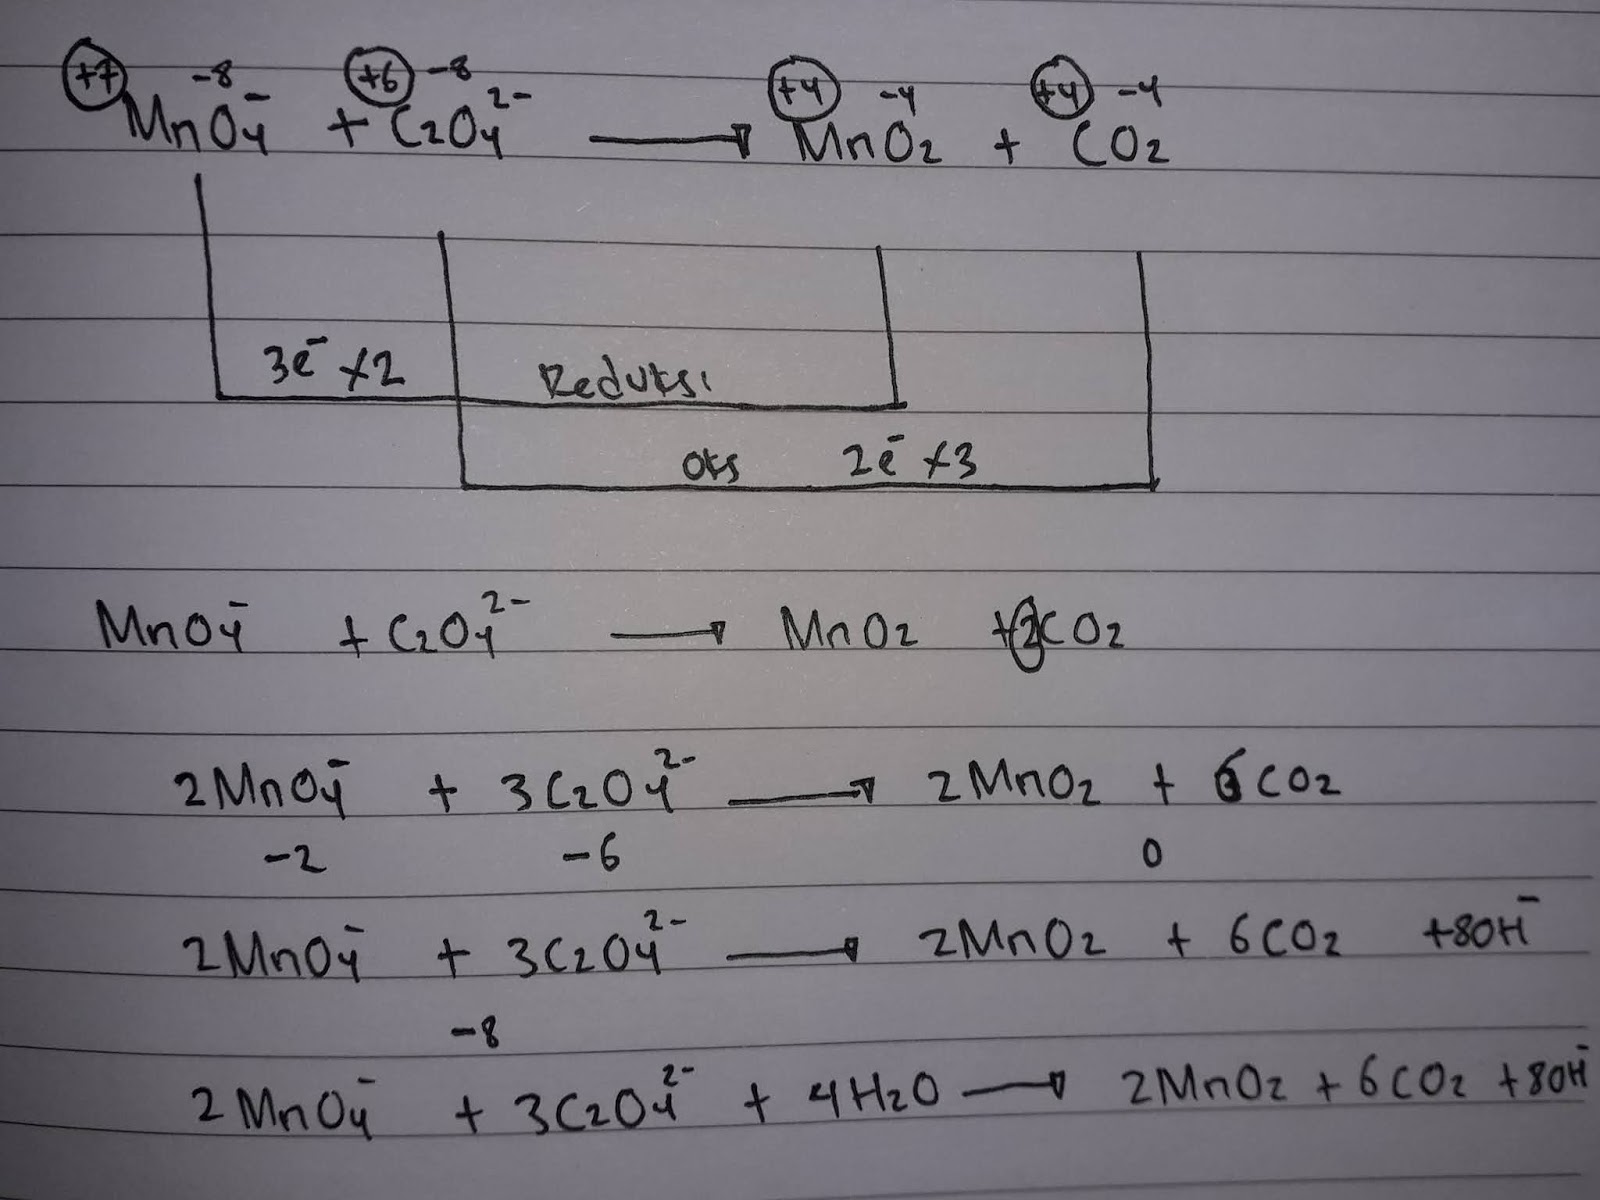 +7 -8 +6 -8 +4 -4 +4 -4
MnO₄⁻ + C₂O₄²⁻ → MnO₂ + CO₂
3e⁻ x2 Reduksi
oks 2e⁻ x3
MnO₄⁻ + C₂O₄²⁻ → MnO₂ + 2CO₂
2MnO₄⁻ + 3C₂O₄²⁻ → 2MnO₂ + 6CO₂
-2 -6 0
2MnO₄⁻ + 3C₂O₄²⁻ → 2MnO₂ + 6CO₂ + 8OH⁻
-8
2MnO₄⁻ + 3C₂O₄²⁻ + 4H₂O → 2MnO₂ + 6CO₂ + 8OH⁻